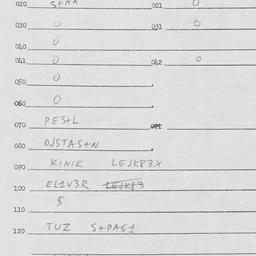 020 S+AX 021 0
030 0 031 0
040 0
041 0 042 0
050 0
060 0
070 PES+L 071
080 OJSTAS+N
090 KINIK LEJKP3X
100 EL1V3R
110 $
120 TUZ S+PAG1